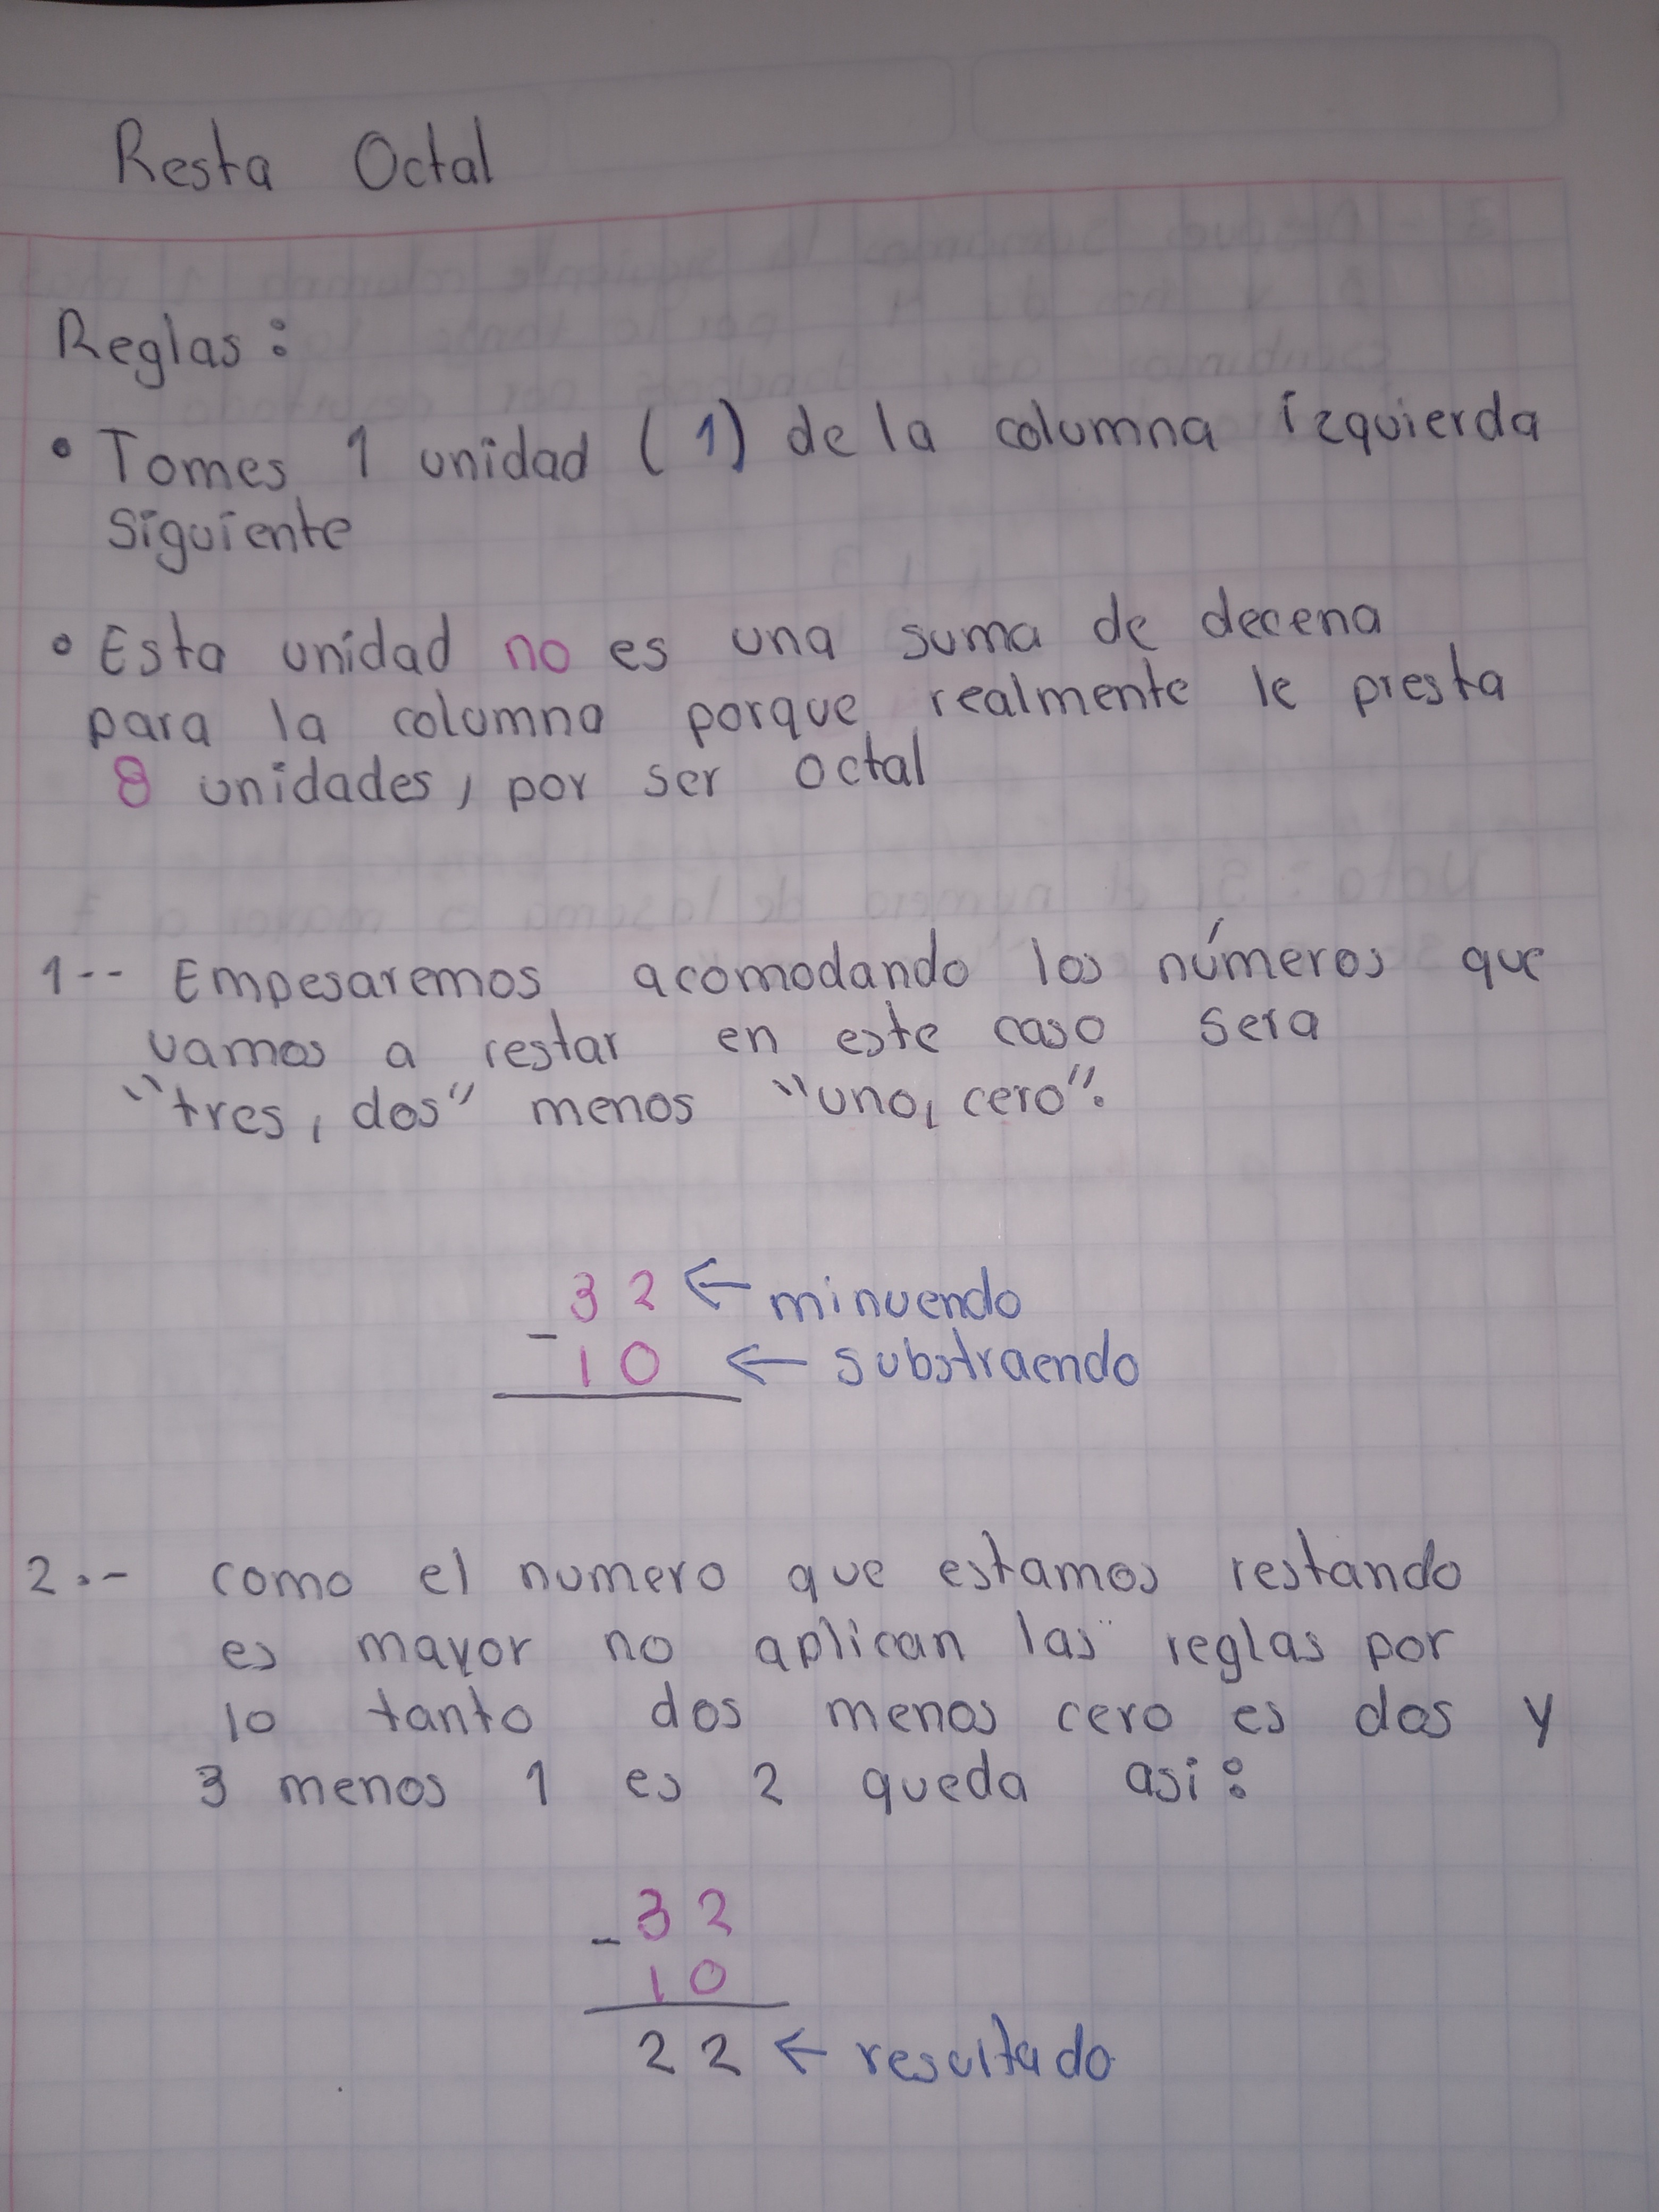 Resta Octal
Reglas:
• Tomes 1 unidad (1) de la columna izquierda
siguiente
• Esta unidad no es una suma de decena
para la columna porque realmente le presta
8 unidades, por ser octal
1.- Empesaremos acomodando los números que
vamos a restar en este caso sera
"tres, dos" menos "uno, cero".
32 ← minuendo
- 10 ← substraendo
2.- como el numero que estamos restando
es mayor no aplican las reglas por
lo tanto dos menos cero es dos y
3 menos 1 es 2 queda asi:
- 32
10
22 ← resultado